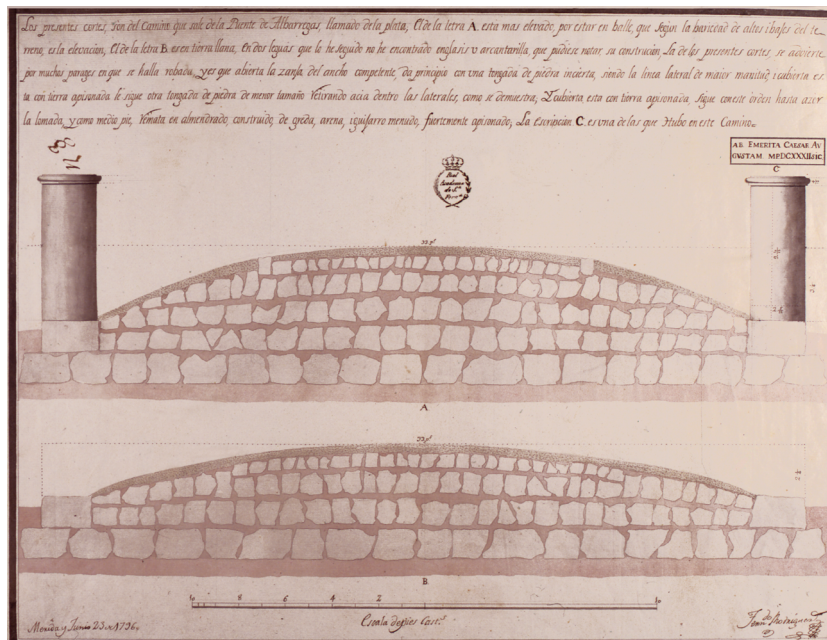 Los presentes cortes, son del Camino que sale de la Puente de Albarregas, llamado de la plata, El de la letra A. esta mas elevado, por estar en balle, que segun la bariedad de altos i bajos del te-
rreno, es la elevacion, El de la letra B. es en tierra llana, En dos leguas que le he seguido no he encontrado englasis v arcantarilla, que pudiese notar su construcion, La de los presentes cortes, se advierte
por muchos parages en que se halla robada, y es que abierta la zanja del ancho competente, da principio con una tongada de piedra incierta, siendo la linea lateral de maior i cubierta es-
ta con tierra apisonada le sigue otra tongada de piedra de menor tamaño Retirando acia dentro las laterales, como se demuestra, Y cubierta esta con tierra apisonada, sigue con este orden hasta acer
la lomada, y como medio pie, Remata en almendrado, construido, de greda, arena, i guijarro menudo, fuertemente apisonado, La escripcion C. es una de las que Hubo en este Camino.
AB. EMERITA CAESAR AV
GVSTAM
C
Real
Academia
de S.n
A
B
8 6 4 2
Escala de pies Cast.s
Merida y Junio 23 de 1796.